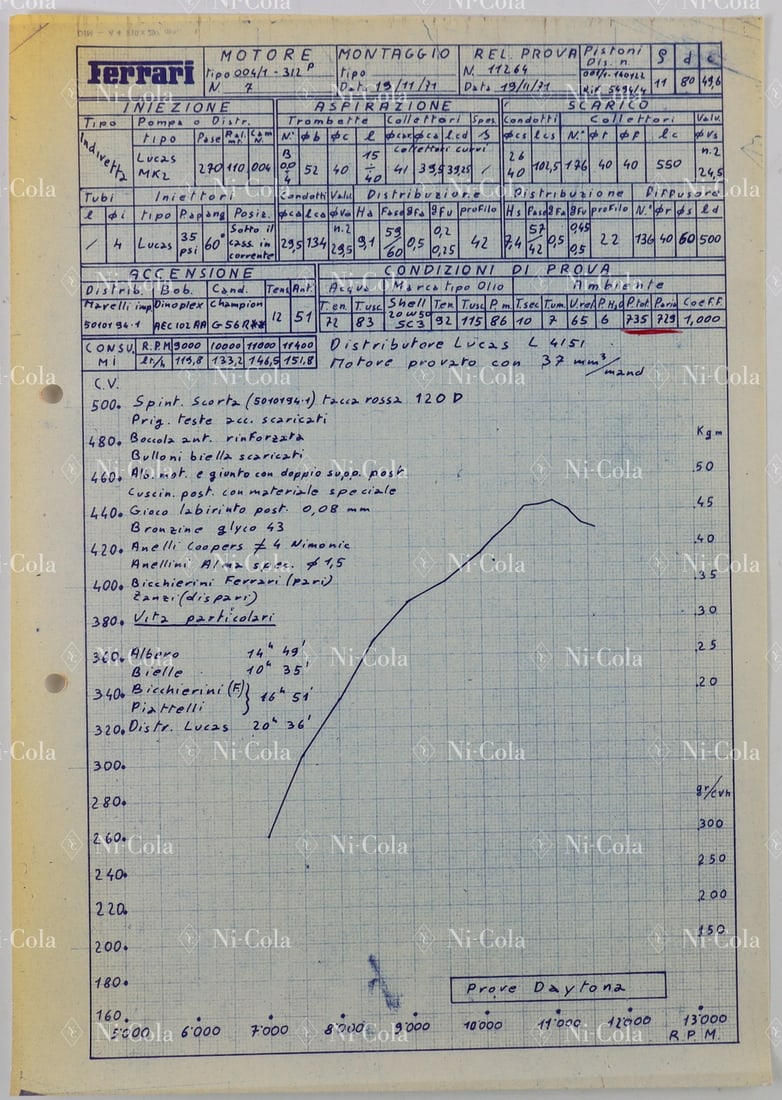 Ferrari
MOTORE
tipo 001/1 - 312 P
N. 7
MONTAGGIO
tipo
Data 19/11/71
REL. PROVA
N. 11264
Data 19/11/71
Pistoni
Dis. n.
ρ d c
11 80 49,6
INIEZIONE
Tipo Pompa o Distr.
tipo Pase Ral. mt. Cam N.
Indiretta
Lucas MK2 270 110 004
Tubi Iniettori
l ϕi tipo P.ap, ang. Posiz.
/ 4 Lucas 35 psi 60° Sotto il cass. in corrente
ASPIRAZIONE
Trombette Collettori Spes.
N.° ϕb ϕc l ϕcar ϕca lcd s
collettori curvi
52 40 15 ÷ 40 41 39,5 39,25 /
Condotti Valv. Distribuzione
ϕca lca ϕva Ha Fase gfa gfu profilo
29,5 134 n.2 29,5 9,1 59/60 0,5 0,2 0,25 42
SCARICO
Condotti Collettori Valv.
ϕcs lcs N.° ϕt ϕf lc ϕvs
26 40 102,5 176 40 40 550 n.2 24,5
Distribuzione Diffusore
Hs Fase gfa gfu profilo N.° ϕr ϕs ld
7,4 57/42 0,5 0,45 0,5 22 136 40 60 500
ACCENSIONE
Distrib. Bob. Cand. Tens. Ant.
Marelli imp. Dinoplex Champion 12 51
5010194-1 AEC102AA
CONDIZIONI DI PROVA
Acqua Marca tipo Olio Ambiente
T.en. T.usc. Shell 20W50 SC3 T.en T.usc. P.m. T.sec T.um. U.rel. P.H₂O P.tot. P.aria Coef.F.
72 83 92 115 86 10 7 65 6 735 729 1,000
CONSUMI R.P.M 9000 10000 11000 11400
lt/h 119,8 133,2 146,5 151,8
Distributore Lucas L 4151
Motore provato con 37 mm³/mand
C.V.
500 Spint. Scorta (5010194-1) tacca rossa 120 D
Prig. teste acc. scaricati
480 Boccola ant. rinforzata
Kgm
Bulloni biella scaricati
460 Alb. mot. e giunto con doppio supp. post
.50
Cuscin. post. con materiale speciale
440 Gioco labirinto post. 0,08 mm
.45
Bronzine glyco 43
420 Anelli Coopers ≠ 4 Nimonic
.40
Anellini Alma spec. ϕ 1,5
400 Bicchierini Ferrari (pari)
.35
Zanzi (dispari)
380 Vita particolari
.30
.25
360 Albero 14ʰ 49'
Bielle 10ʰ 35'
.20
340 Bicchierini (F) } 16ʰ 51'
Piattelli
320 Distr. Lucas 20ʰ 36'
300
280
gr/cvh
260
.300
.250
240
.200
220
.150
200
180
Prove Daytona
160
5'000 6'000 7'000 8'000 9'000 10'000 11'000 12'000 13'000
R.P.M.
Ni-Cola